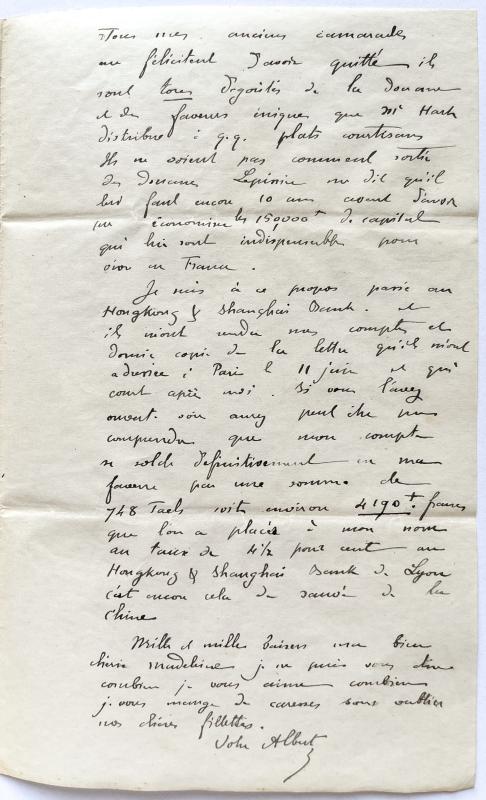 Tous mes anciens camarades
me félicitent d'avoir quitté ils
sont tous dégoutés de la douane
et des faveurs iniques que Mr Hart
distribue à q.q. plats courtisans
Ils ne voient pas comment sortir
des douanes Lépissier me dit qu'il
lui faut encore 10 ans avant d'avoir
pu économiser les 150000 f de capital
qui lui sont indispensables pour
vivre en France.
Je suis à ce propos passé au
Hongkong & Shanghai Bank. et
ils m'ont rendu mes comptes et
donné copie de la lettre qu'ils m'ont
adressée à Paris le 11 juin et qui
court après moi. Si vous l'avez
ouverte vous aurez peut être pu
comprendre que mon compte
se solde définitivement en ma
faveur par une somme de
748 Taels soit environ 4190 f. francs
que l'on a placés à mon nom
au taux de 4 1/2 pour cent au
Hongkong & Shanghai Bank de Lyon
c'est encore cela de sauvé de la
Chine
Mille et mille baisers ma bien
chérie Madeleine je ne puis vous dire
combien je vous aime combien
je vous mange de caresses sans oublier
nos chères fillettes.
Votre Albert